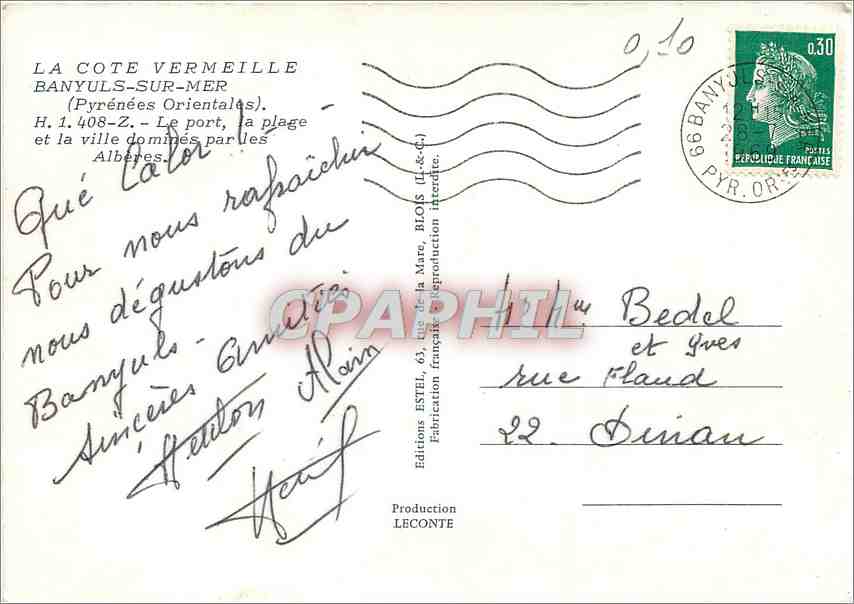 LA COTE VERMEILLE
BANYULS-SUR-MER
(Pyrénées Orientales).
H. 1. 408-Z. - Le port, la plage
et la ville dominés par les
Albères.
Qué Calor !
Pour nous rafraîchir
nous dégustons du
Banyuls -
Sincères Amitiés
Alain
0,10
0,30
POSTES
REPUBLIQUE FRANÇAISE
66 BANYULS
PYR. OR
Editions ESTEL, 63, rue de la Mare, BLOIS (L.-&-C.)
Fabrication française - Reproduction interdite.
CPAPHIL
Bedel
et Yves
rue Flaud
22. Dinan
Production
LECONTE